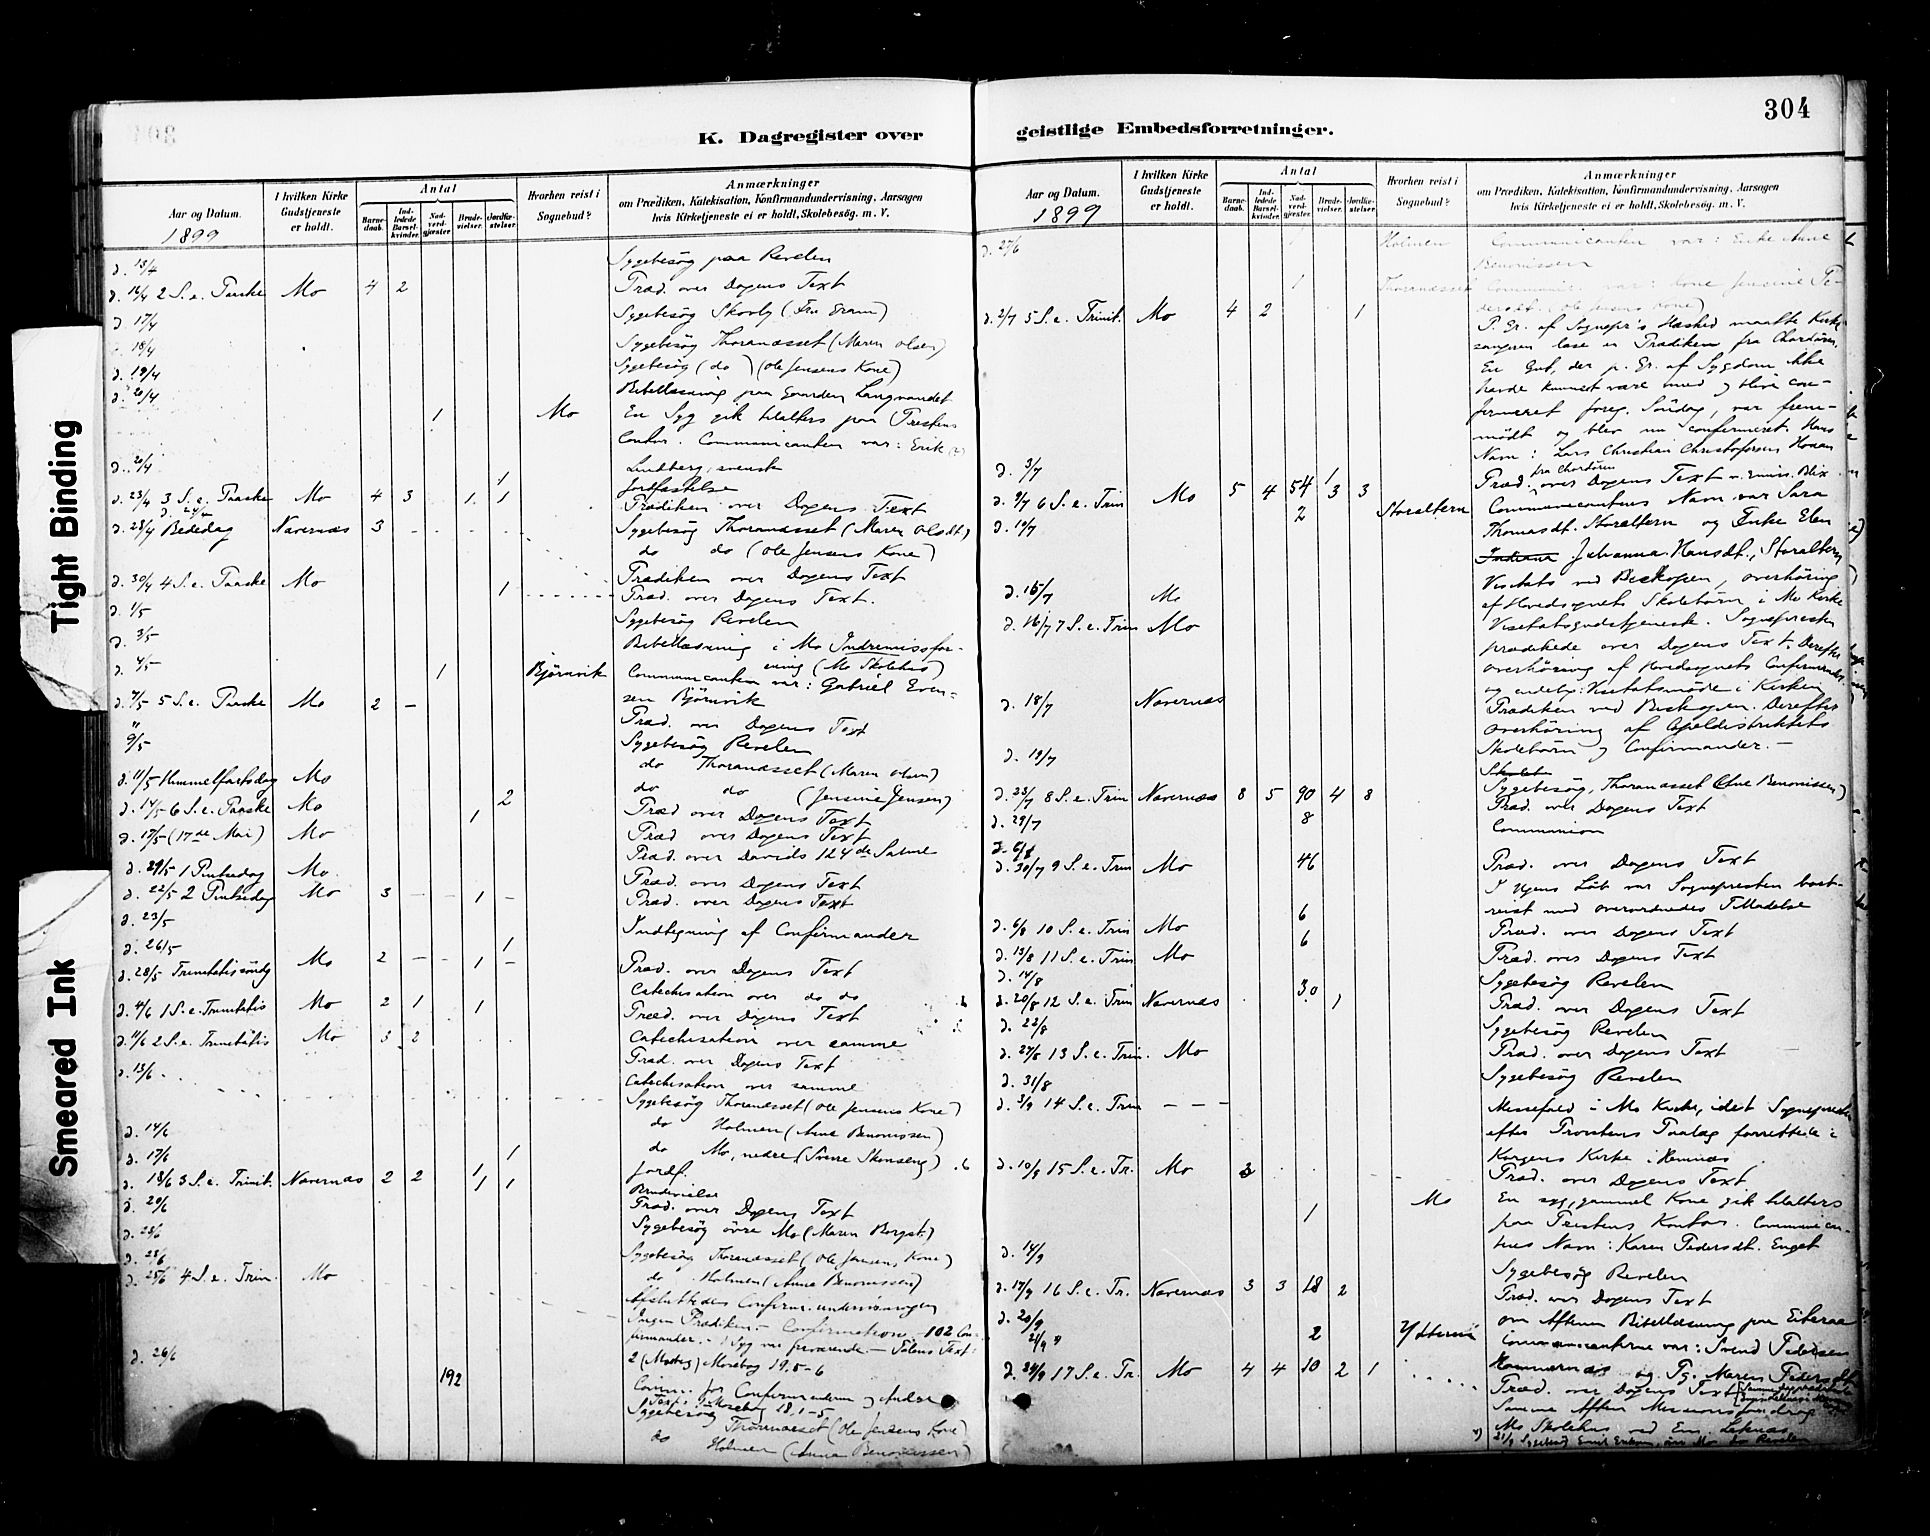 304
K. Dagregister over
geistlige Embedsforretninger.
Tight Binding
Smeared Ink
Aar og Datum.
1899
I hvilken Kirke Gudstjeneste er holdt.
Antal
Barnedaab.
Indledede Barselkvinder.
Nadverdgjester
Brudevielser.
Jordfæstelser.
Hvorhen reist i Sognebud?
Anmærkninger
om Prædiken, Katekisation, Konfirmandundervisning, Aarsagen
hvis Kirketjeneste ei er holdt, Skolebesøg. m. V.
d. 13/4 Sygebesög paa Revelen
d. 16/4 2 S. e. Paaske Mo 4 2 Præd. over Dagens Text
d. 17/4 Sygebesög Skonly (Fru Gram)
d. 18/4 Sygebesög Thoranæsset (Maren Olsen)
d. 19/4 Sygebesög (do) (Ole Jensens Kone)
d. 20/4 Bibellæsning paa Gaarden Langvandet
1 Mo En Syg gik til alters paa Prestens
Contor. Communicanten var: Erik
Lindberg, svensk
d. 20/4 1 Jordfæstelse
d. 23/4 3 S. e. Paaske Mo 4 3 1 1 Prædiken over Dagens Text
Sygebesög Thoranæsset (Maren Olsdt)
do do (Ole Jensens Kone)
d. 28/4 Bededag Nævernæs 3 Prædiken over Dagens Text
d. 30/4 4 S. e. Paaske Mo 1 Præd. over Dagens Text.
d. 1/5 Sygebesög Revelen
d. 3/5 Bibellæsning i Mo Indremissfor-
ening (Mo Skolehus)
d. 4/5 1 Bjørnvik Communicanten var: Gabriel Even-
sen Bjørnvik
d. 7/5 5 S. e. Paaske Mo 2 - Præd. over Dagens Text
" Sygebesög Revelen
9/5 do Thoranæsset (Maren Olsen)
do do (Jensine Jensen)
d. 11/5 Himmelfartsdag Mo Præd over Dagens Text
d. 14/5 6 S. e. Paaske Mo 2 Præd over Dagens Text
d. 17/5 (17de Mai) Mo 1 Præd. over Davids 124de Salme
d. 21/5 1 Pintsedag Mo. Præd. over Dagens Text
d. 22/5 2 Pintsedag Mo 3 - - 1 - Præd. over Dagens Text
d. 23/5 Indtegning af Confirmander
d. 26/5 1
d. 28/5 Trinitatissöndag Mo 2 - - 1 - Præd. over Dagens Text
Catechisation over do do
d. 4/6 1 S. e. Trinitatis Mo 2 1 1 Præd. over Dagens Text
Catechisation over samme
d. 11/6 2 S. e. Trinitatis Mo 3 2 Præd. over Dagens Text
Catechisation over samme
d. 13/6 Sygebesög Thoranæsset (Ole Jensens Kone)
do Holmen (Anne Benonissen)
do Mo, nedre
d. 14/6
d. 17/6 1 Jordf.
1 Brudevielse
d. 18/6 3 S. e. Trinit. Nævernæs 2 2 1 1 Præd. over Dagens Text
d. 20/6 Sygebesög övre Mo (Maren Borgst.)
d. 23/6 Sygebesög Thoranæsset (Ole Jensens Kone)
do Holmen (Anne Benonissen)
Afsluttedes Confirm. undervisningen
d. 25/6 4 S. e. Trin. Mo Ingen Prædiken - Confirmation 102 Con-
firmander. - 1 Syg var fraværende - Talens Text:
2 Mosebog 19, 5-6
d. 26/6 192 Comm. for Confirmanderne og Andre
Text: Mosebog 18, 1-5
Sygebesög Thoranæsset (Ole Jensens Kone)
do Holmen (Anna Benonissen)
Aar og Datum.
1899
I hvilken Kirke Gudstjeneste er holdt.
Antal
Barnedaab.
Indledede Barselkvinder.
Nadverdgjester
Brudevielser.
Jordfæstelser.
Hvorhen reist i Sognebud?
Anmærkninger
om Prædiken, Katekisation, Konfirmandundervisning, Aarsagen
hvis Kirketjeneste ei er holdt, Skolebesøg. m. V.
d. 27/6 1 Holmen Communicanten var: Enke Anne
Benonissen
1 Thoranæsset Communic. var: Kone Jensine Pe-
dersdt. (Ole Jensens Kone)
d. 2/7 5 S. e. Trinit. Mo 4 2 1 P. Gr. af Sognepr's Hæshed maatte Kirke-
sangeren læse en Prædiken fra Chordören.
En Gut, der p. Gr. af Sygdom ikke
havde kunnet være med og blive con-
firmeret foreg. Söndag, var frem-
mödt og blev nu confirmeret. Hans
Navn: Lars Christian Christofersen
d. 3/7
fra Chordören
d. 9/7 6 S. e. Trin Mo 5 4 54 3 3 Præd. over Dagens Text v. Emis. Blix
2 Storaltern Communicantens Navn var Sara
d. 14/7 Thomasdt. Storaltern og Enke Elen
Johanna Hansdt., Storaltern
d. 15/7 Mo Visitats ved Biskopen, overhöring
af Hovedsognets Skolebörn i Mo Kirke
d. 16/7 7 S. e. Trin Mo Visitatsgudstjeneste. Sognepresten
prædikede over Dagens Text. Derefter
overhöring af Hovedsognets Confirmander
og endelig Visitatsmöde i Kirken
d. 18/7 Nævernæs Prædiken ved Biskopen. Derefter
overhöring af Capeldistriktets
Skolebörn og Confirmander. -
d. 19/7 Sygebesög, Thoranæsset (Ane Benonissen)
d. 23/7 8 S. e. Trin Nævernæs 8 5 90 4 8 Præd. over Dagens Text
d. 29/7 8 Communion
d. 6/8
d. 30/7 9 S. e. Trin Mo 46 Præd. over Dagens Text
I Ugens Löb var Sognepresten bort-
reist med overordnedes Tilladelse
d. 6/8 10 S. e. Trin Mo 6 Præd. over Dagens Text
d. 13/8 11 S. e. Trin Mo 6 Præd. over Dagens Text
d. 14/8 Sygebesög Revelen
d. 20/8 12 S. e. Trin Nævernæs 30 1 Præd. over Dagens Text
d. 22/8 Sygebesög Revelen
d. 27/8 13 S. e. Trin. Mo Præd. over Dagens Text
d. 31/8 Sygebesög Revelen
d. 3/9 14 S. e. Trin - - - Messefald i Mo Kirke, idet Sognepresten
efter Provstens Paalæg forrettede i
Korgens Kirke i Hemnæs
d. 10/9 15 S. e. Tr. Mo 3 Præd. over Dagens Text
1 Mo En syg, gammel Kone gik til alters
paa Prestens Kontor. Communican-
tens Navn: Karen Pedersdt. Enget
d. 14/9 Sygebesög Revelen
d. 17/9 16 S. e. Tr. Nævernæs 3 3 18 2 Præd. over Dagens Text
d. 20/9 om Aftenen Bibellæsning paa
21/9 2 Ytteren Communicanterne var: Svend Pedersen
og Pg. Maren Pedersdt
d. 24/9 17 S. e. Tr. Mo 4 4 10 2 1 Præd. over Dagens Text
Samme Aften Missionsforedrag
Mo Skolehus ved Em.
21/9 Sygebesög